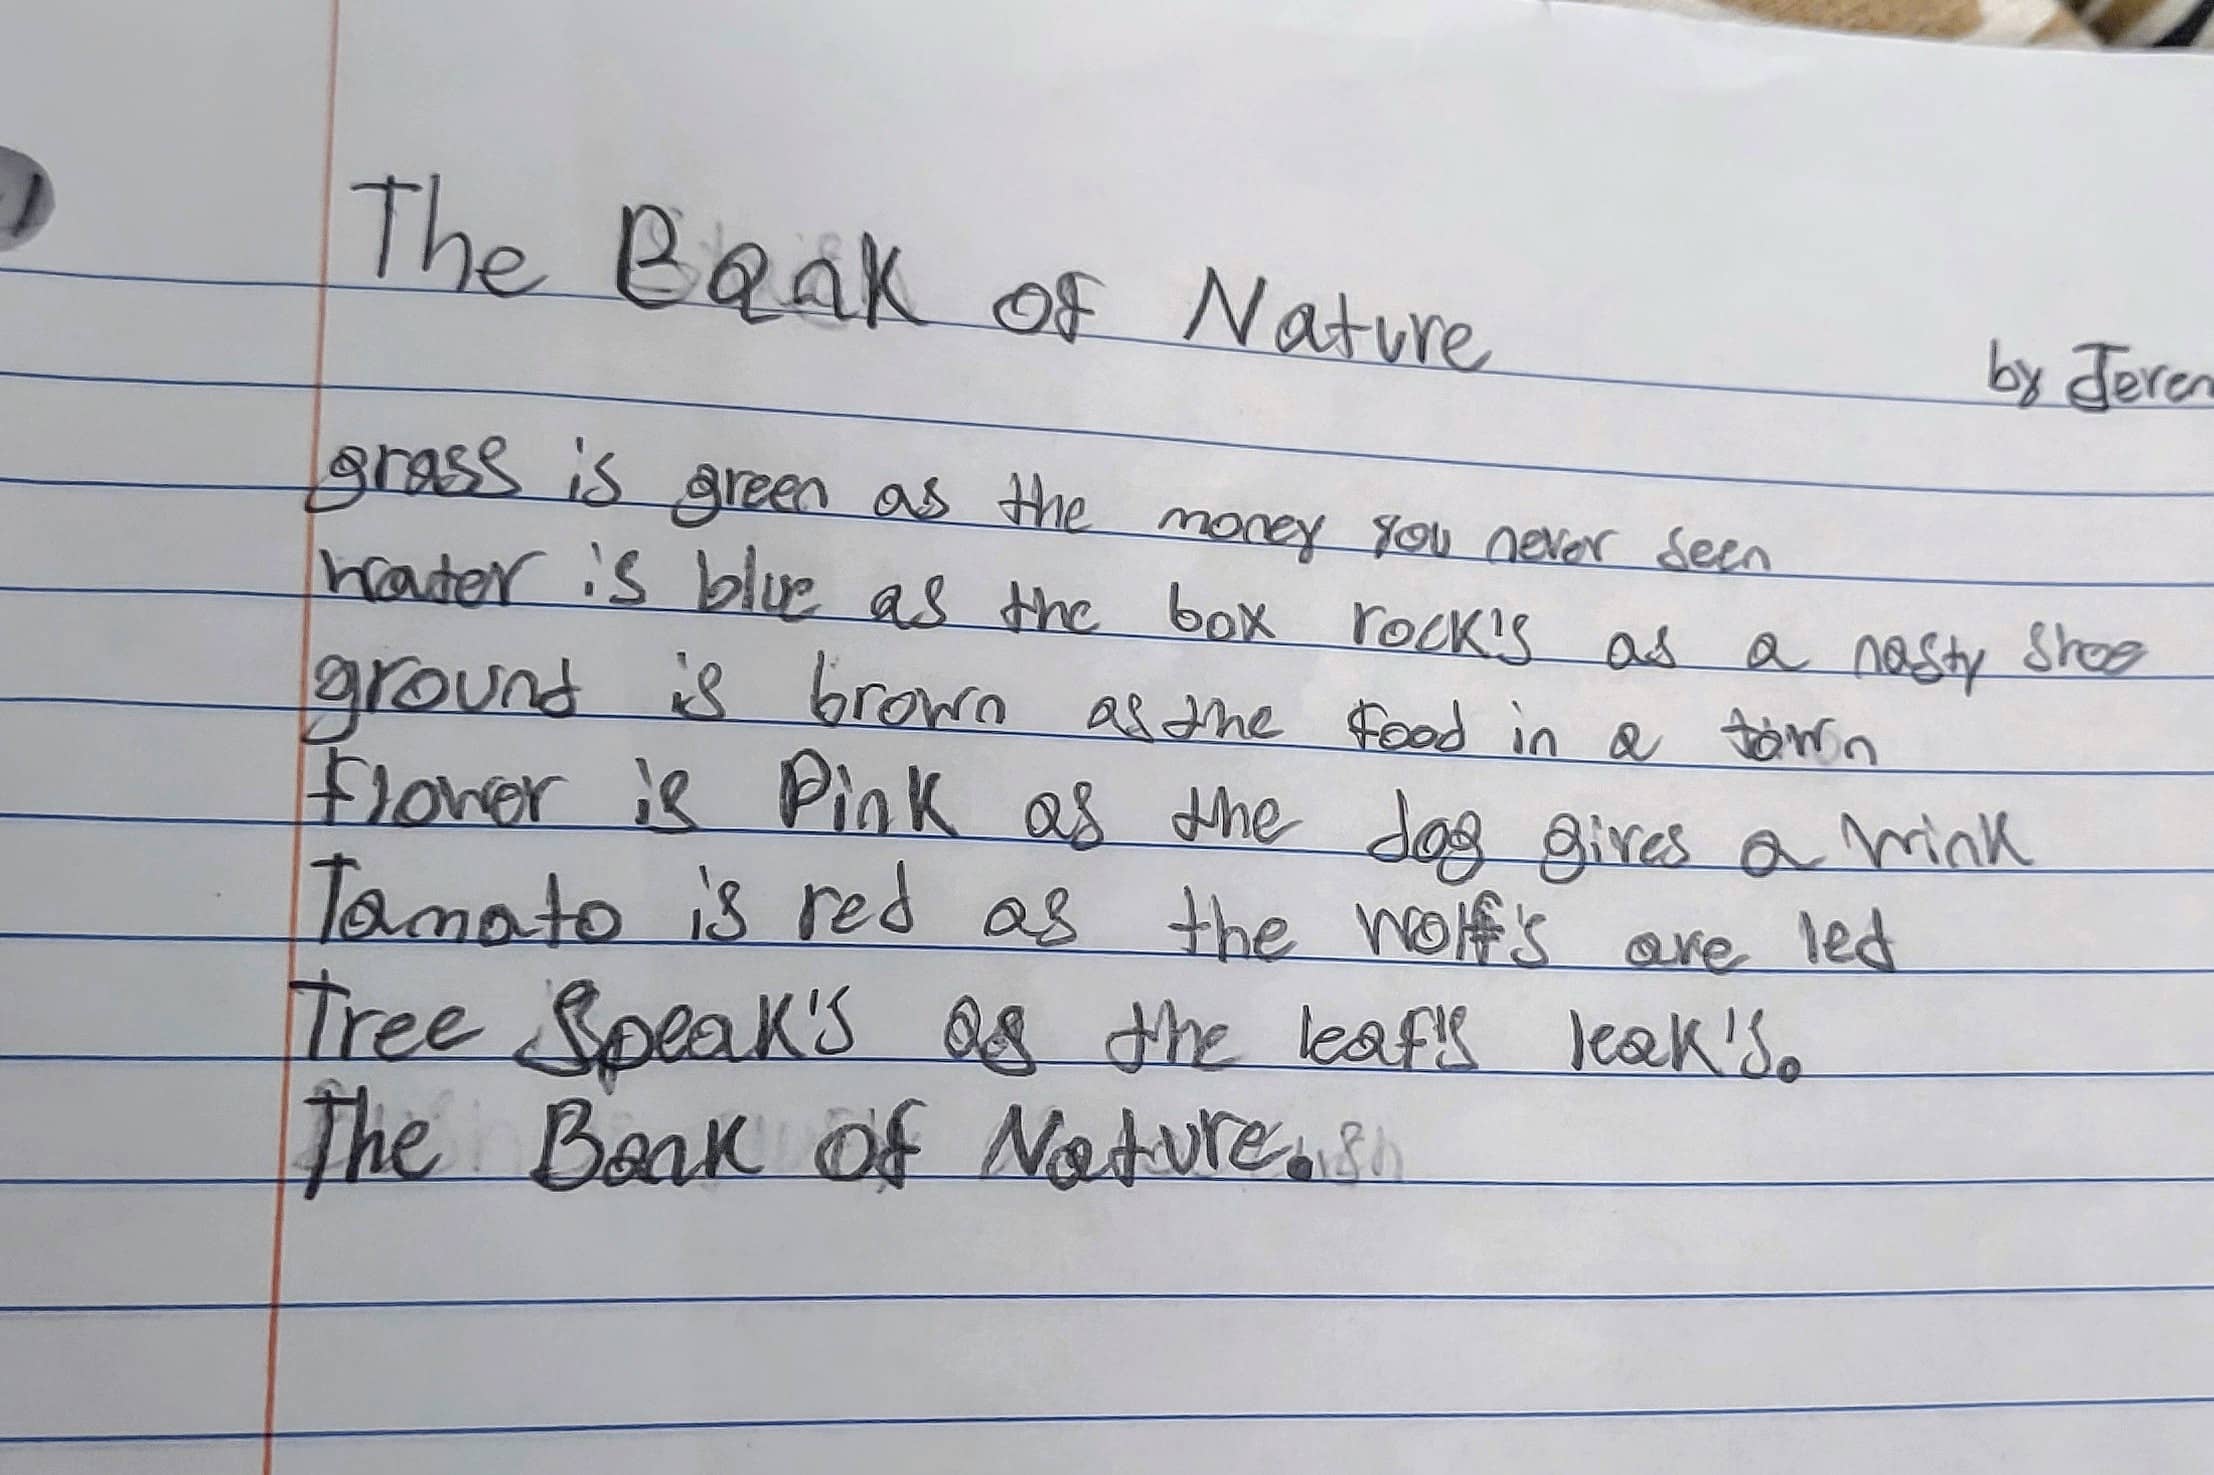 The Bank of Nature
by Jerem
grass is green as the money you never seen
water is blue as the box rock's as a nasty shoe
ground is brown as the food in a town
flower is Pink as the dog gives a wink
Tomato is red as the wolf's are led
Tree Speak's as the leaf's leak's.
The Bank of Nature.